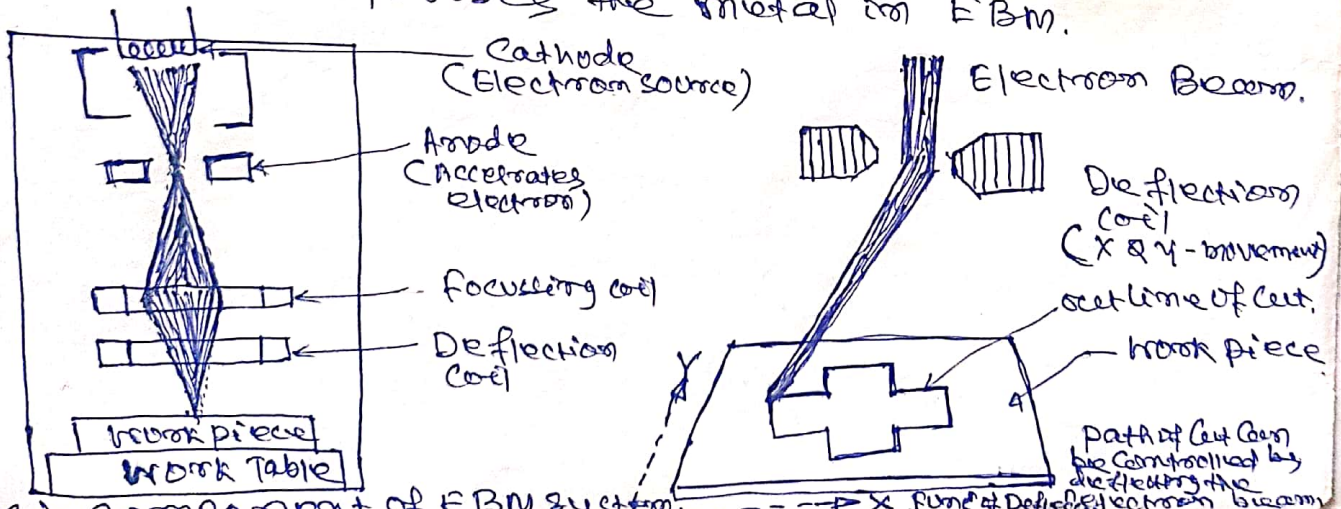 the metal in EBM.
Cathode
(Electron source)
Anode
(Accelrates
electron)
focussing coil
Deflection
coil
work piece
WORK Table
Component of EBM System.
Electron Beam.
Deflection
coil
(X & Y - movement)
outline of cut.
work piece
Y
path of cut can
be controlled by
deflecting the
electron beam
X